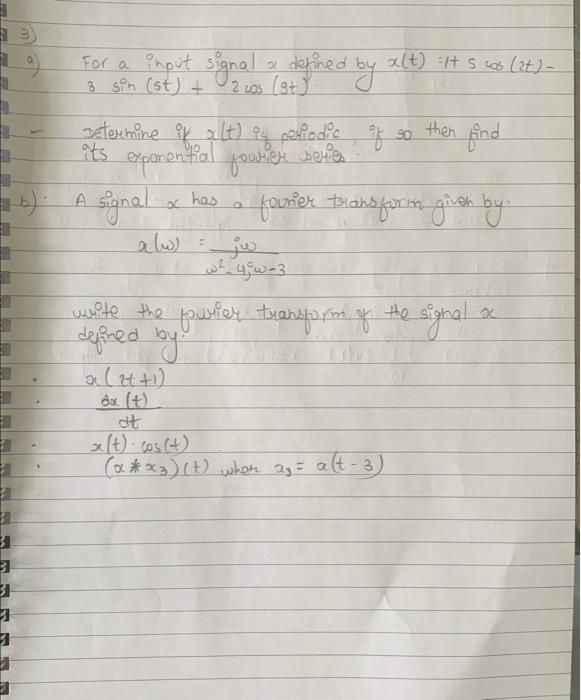 3)
a) For a input signal x defined by x(t) = 1 + 5 cos (2t) -
3 sin (5t) + 2 cos (9t)
- Determine if x(t) is periodic, if so then find
its exponential fourier series.
b) A signal x has a fourier transform given by.
x(w) = jw
w² - 4jw - 3
write the fourier transform of the signal x
defined by:
. x(2t+1)
. dx(t)
dt
- x(t) . cos(t)
. (x * x₃)(t) when x₃ = x(t - 3)